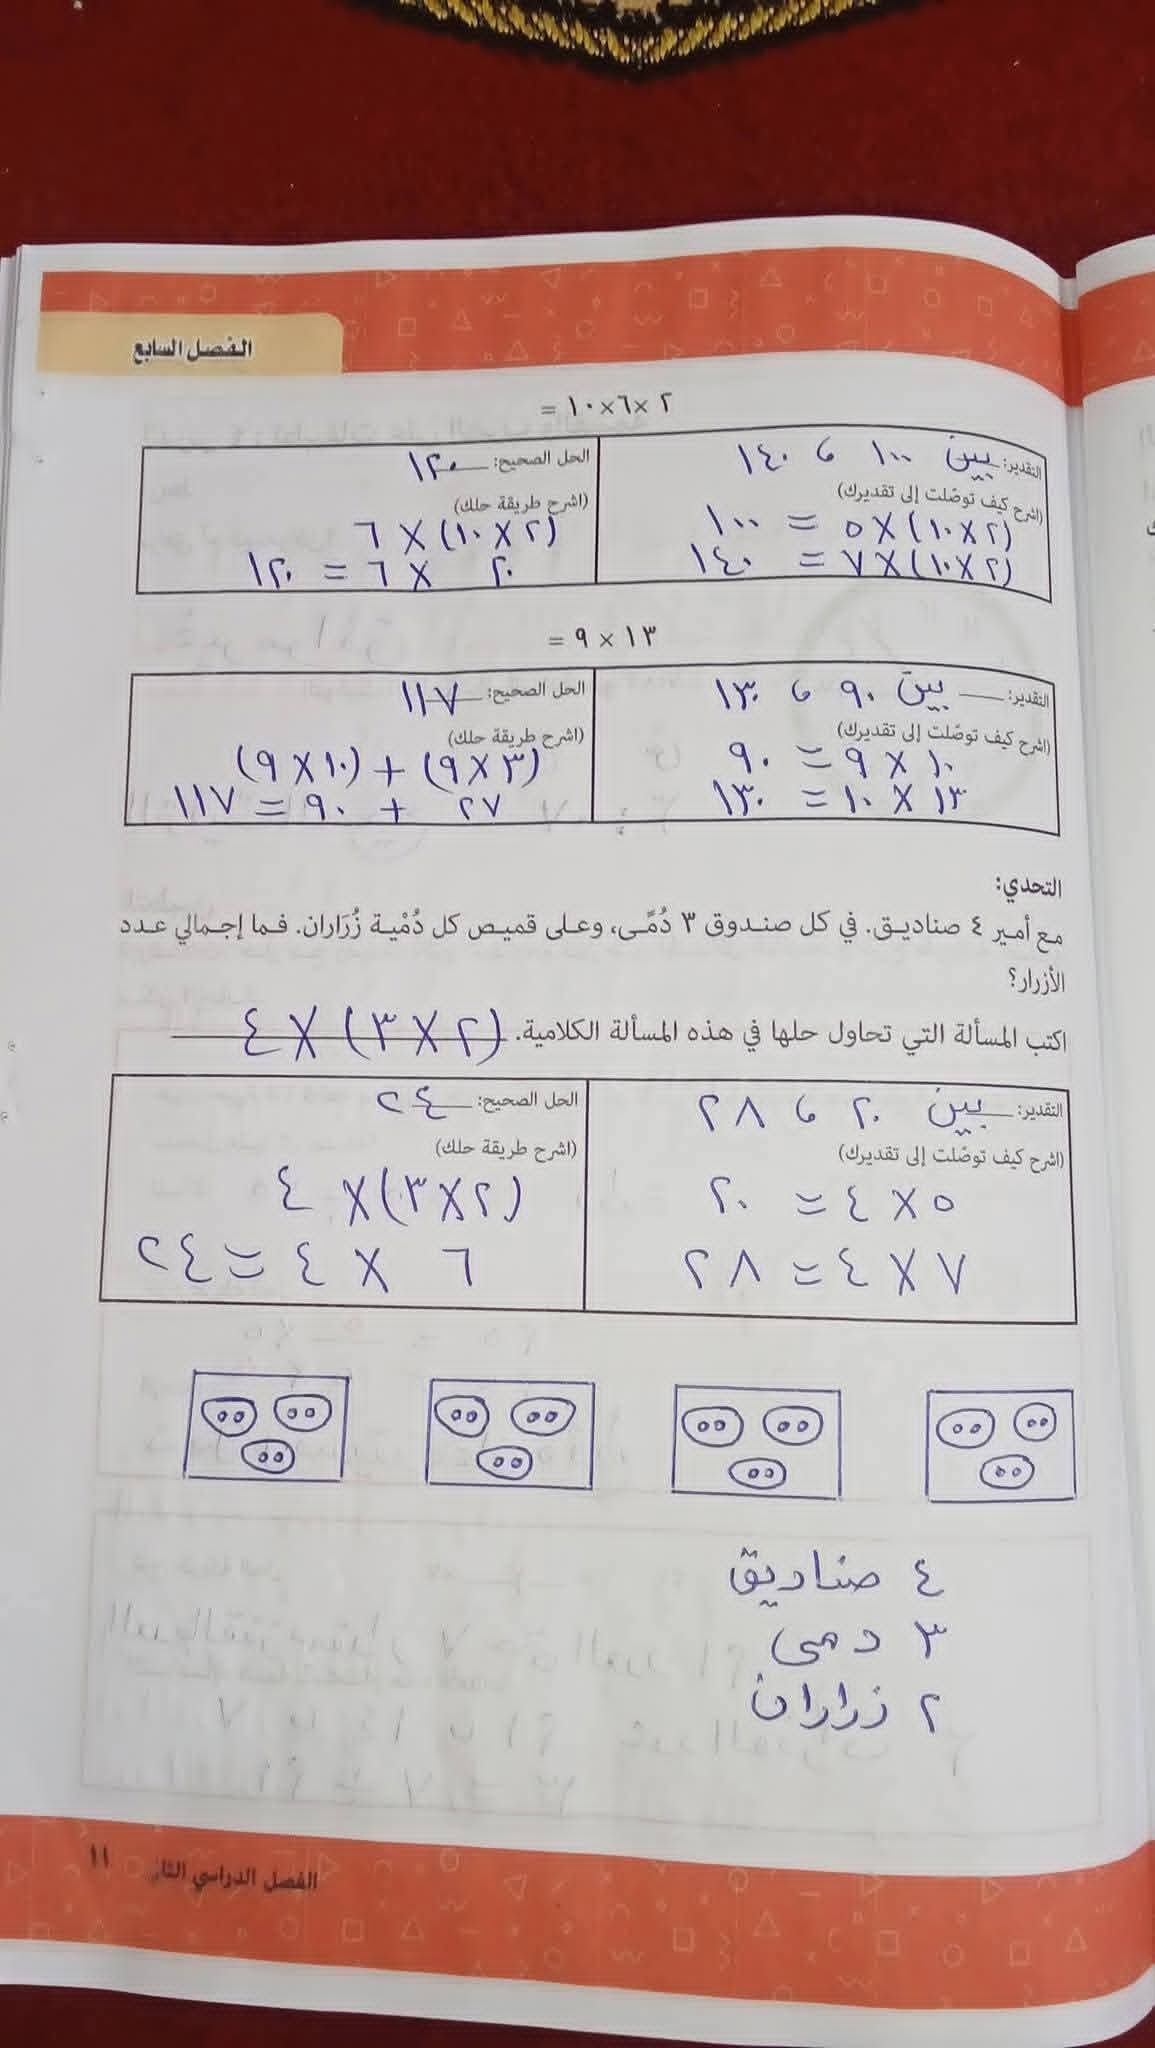 الفصل السابع
٢ × ٦ × ١٠ =
التقدير: بين ١٠٠ ، ١٤٠
(اشرح كيف توصّلت إلى تقديرك)
(٢ × ١٠) × ٥ = ١٠٠
(٢ × ١٠) × ٧ = ١٤٠
الحل الصحيح: ١٢٠
(اشرح طريقة حلك)
(٢ × ١٠) × ٦
٢٠ × ٦ = ١٢٠
١٣ × ٩ =
التقدير: بين ٩٠ ، ١٣٠
(اشرح كيف توصّلت إلى تقديرك)
١٠ × ٩ = ٩٠
١٣ × ١٠ = ١٣٠
الحل الصحيح: ١١٧
(اشرح طريقة حلك)
(٣ × ٩) + (١٠ × ٩)
٢٧ + ٩٠ = ١١٧
التحدي:
مع أمير ٤ صناديق. في كل صندوق ٣ دُمًى، وعلى قميص كل دُمْية زُرَاران. فما إجمالي عدد
الأزرار؟
اكتب المسألة التي تحاول حلها في هذه المسألة الكلامية. (٢ × ٣) × ٤
التقدير: بين ٢٠ ، ٢٨
(اشرح كيف توصّلت إلى تقديرك)
٥ × ٤ = ٢٠
٧ × ٤ = ٢٨
الحل الصحيح: ٢٤
(اشرح طريقة حلك)
(٢ × ٣) × ٤
٦ × ٤ = ٢٤
٤ صناديق
٣ دمى
٢ زراران
الفصل الدراسي ١١